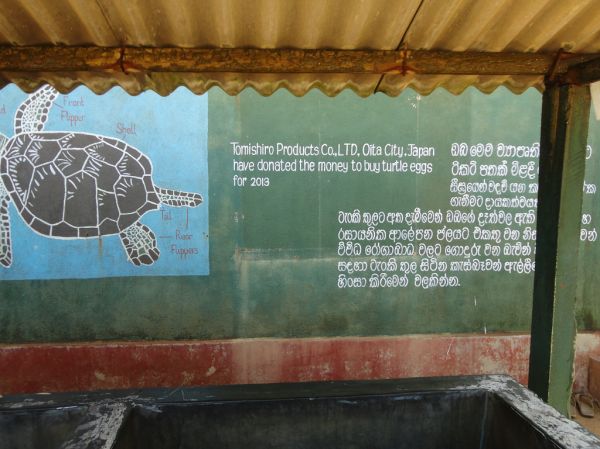 Front
Flipper
Shell
Tail
Rear
Flippers
Tomishiro Products Co.,LTD, Oita City, Japan
have donated the money to buy turtle eggs
for 2013
ඔබ මෙම ව්‍යාපෘති
ටිකට් පතක් මිළදී
සිසුගෙන්වදුම් යන
ගැනීමට දායකත්වයෂ
ටැංකි තුලට අත දැමීමෙන් ඔබගේ දෑත්වල ඇති
රසායනික ආලේපන ජලයට එකතු වන නිසා
විවිධ රෝගාබාධ වලට ගොදුරු වන බැවින්
සඳහා ටැංකි තුල සිටින කැස්බෑවන් ඇල්ලී
හිංසා කිරීමෙන් වලකින්න.